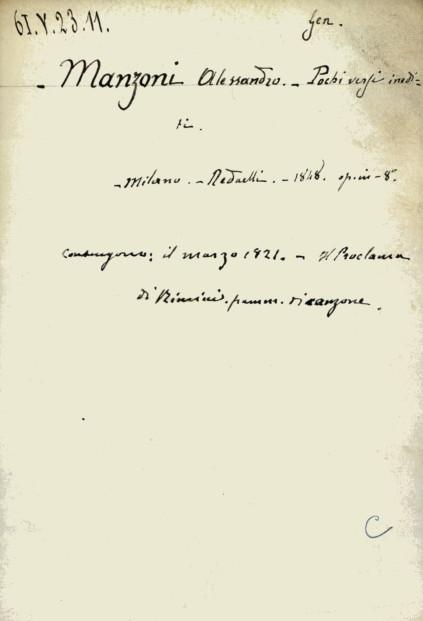 61.V.23.11.
Gen.
- Manzoni Alessandro. - Pochi versi inedi-
ti.
- Milano. - Redaelli. - 1848. op. in-8°.
contengono: il marzo 1821. - Il Proclama
di Rimini. framm. di canzone.
C